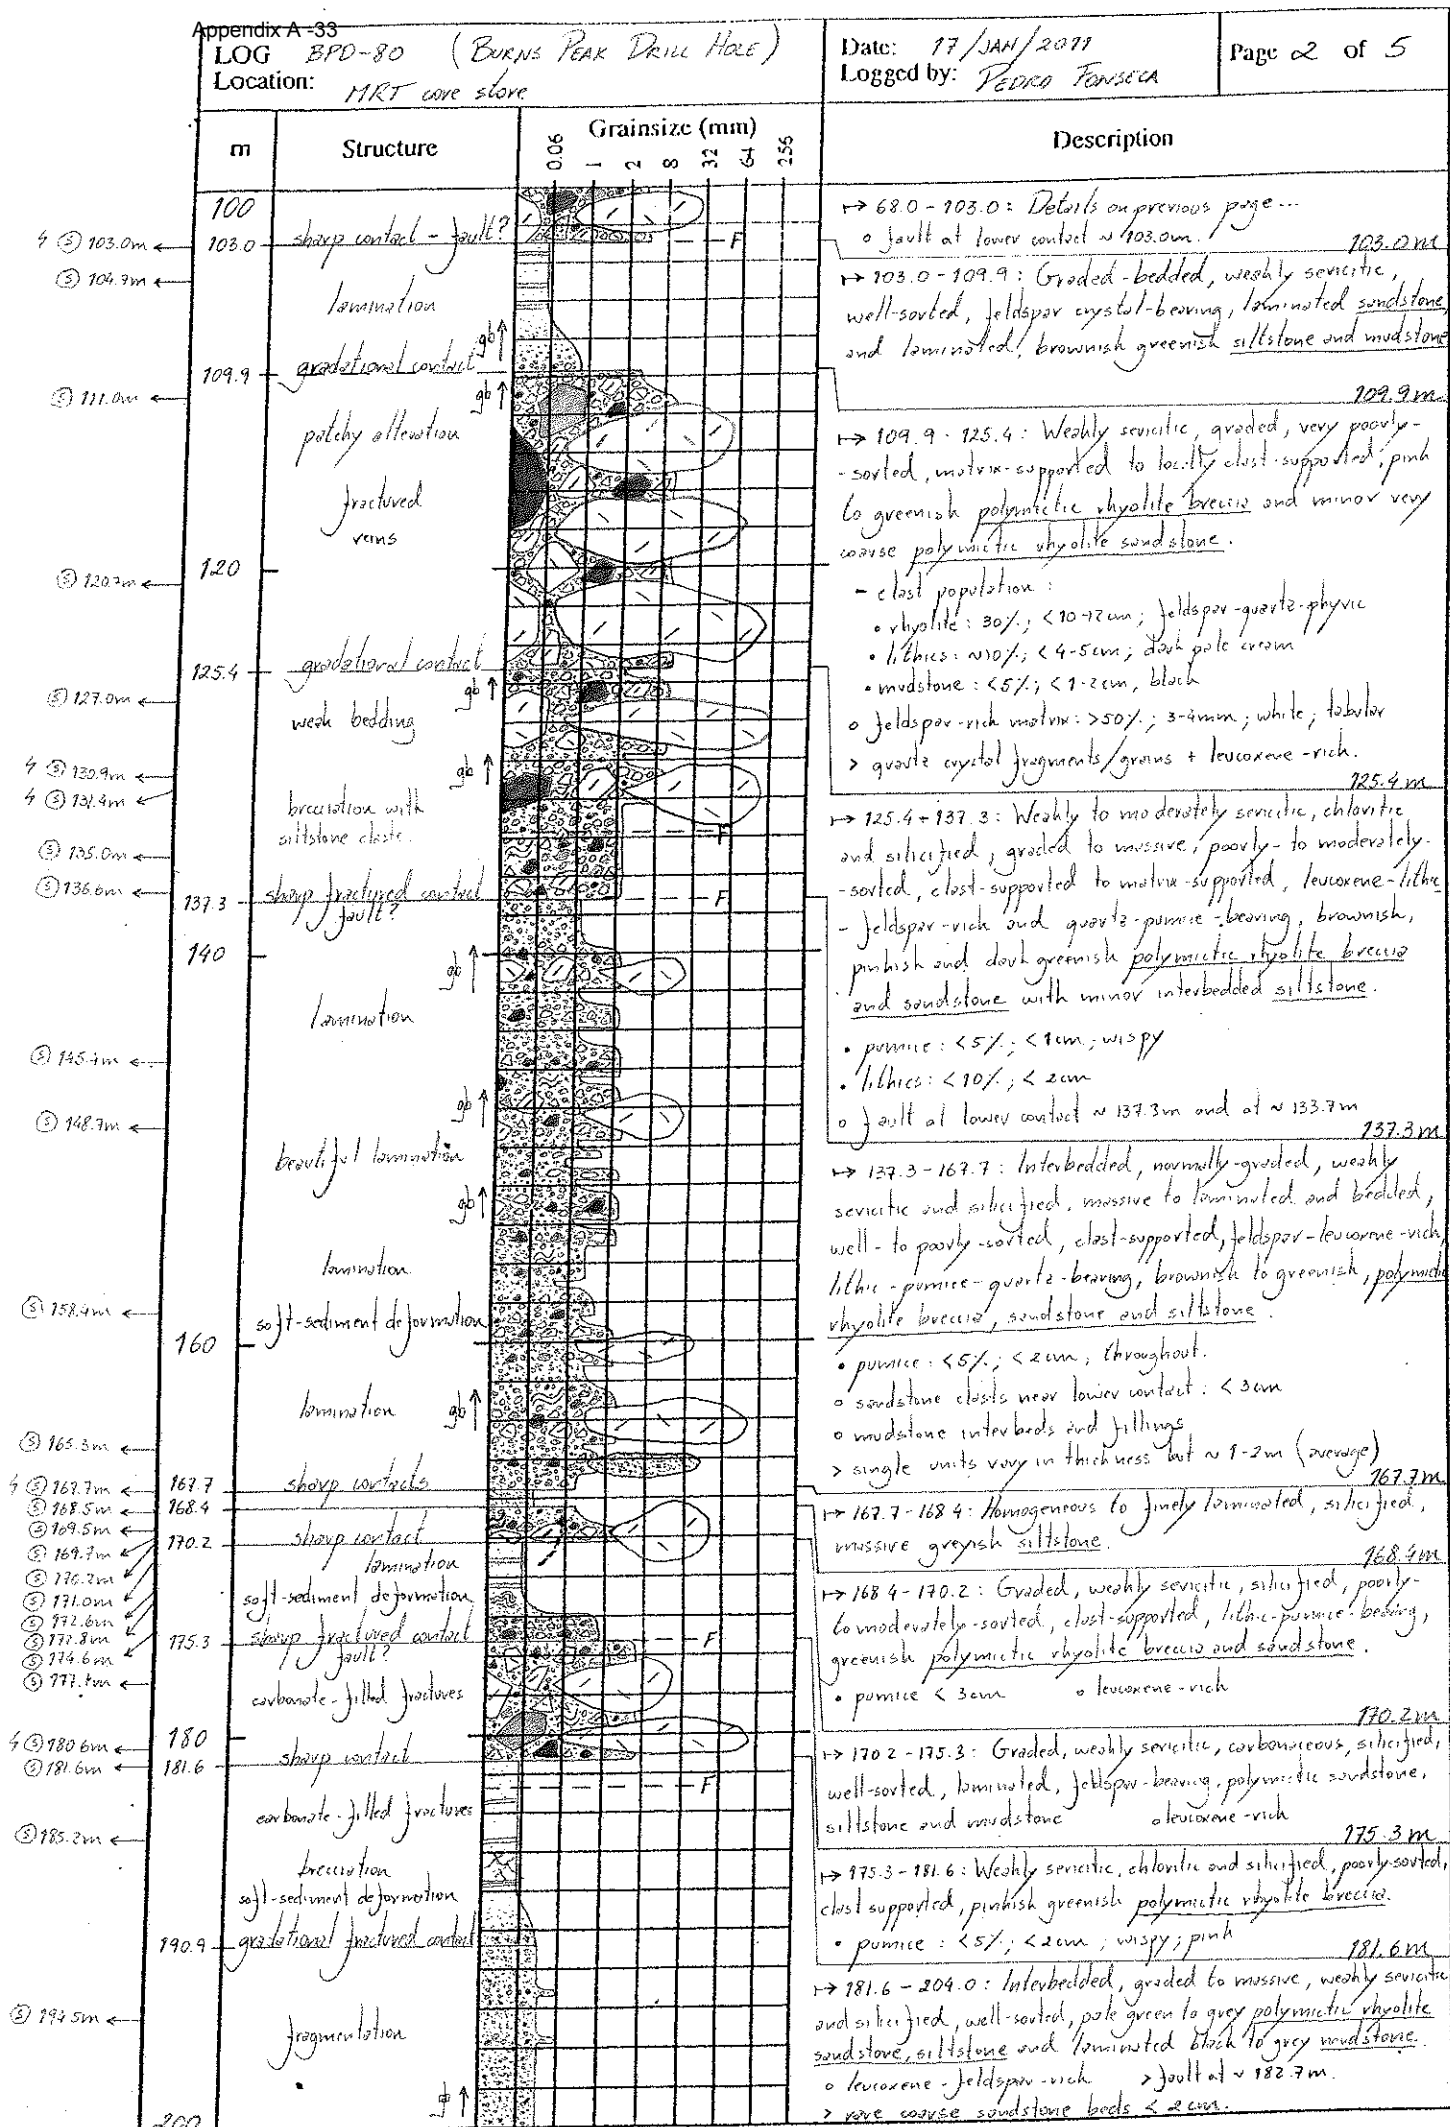 Appendix A -33
LOG BPD-80 (BURNS PEAK DRILL HOLE)
Location: MRT core store
Date: 17/JAN/2011
Logged by: PEDRO FONSECA
Page 2 of 5
m
Structure
Grainsize (mm)
0.06 1 2 8 32 64 256
Description
100
ϟ Ⓢ 103.0m ←
103.0
sharp contact - fault?
F
Ⓢ 104.9m ←
lamination
gb ↑
109.9
gradational contact
Ⓢ 111.0m ←
gb ↑
patchy alteration
fractured
veins
Ⓢ 120.7m ←
120
125.4
gradational contact
gb ↑
Ⓢ 127.0m ←
weak bedding
gb ↑
ϟ Ⓢ 130.9m ←
ϟ Ⓢ 131.4m ←
brecciation with
siltstone clasts.
F
Ⓢ 135.0m ←
Ⓢ 136.6m ←
137.3
sharp fractured contact
fault?
F
140
gb ↑
lamination
Ⓢ 145.4m ←
gb ↑
Ⓢ 148.7m ←
beautiful lamination
gb ↑
lamination
Ⓢ 158.4m ←
soft-sediment deformation
160
lamination
gb ↑
Ⓢ 165.3m ←
ϟ Ⓢ 167.7m ←
167.7
sharp contacts
Ⓢ 168.5m ←
168.4
Ⓢ 169.5m ←
Ⓢ 169.7m
170.2
sharp contact
lamination
Ⓢ 170.2m
Ⓢ 171.0m
soft-sediment deformation
Ⓢ 172.6m
Ⓢ 172.8m
175.3
sharp fractured contact
fault?
F
Ⓢ 174.6m
Ⓢ 177.1m ←
carbonate-filled fractures
180
ϟ Ⓢ 180.6m ←
Ⓢ 181.6m ←
181.6
sharp contact
F
carbonate-filled fractures
Ⓢ 185.2m ←
brecciation
soft-sediment deformation
190.9
gradational fractured contact
Ⓢ 194.5m ←
fragmentation
gb ↑
200
↦ 68.0 - 103.0: Details on previous page...
∘ fault at lower contact ~ 103.0m.
103.0m
↦ 103.0 - 109.9: Graded-bedded, weakly sericitic,
well-sorted, feldspar crystal-bearing, laminated sandstone
and laminated, brownish greenish siltstone and mudstone
109.9m
↦ 109.9 - 125.4: Weakly sericitic, graded, very poorly-
-sorted, matrix-supported to locally clast-supported; pink
to greenish polymictic rhyolite breccia and minor very
coarse polymictic rhyolite sandstone.
- clast population:
• rhyolite: 30%; <10-12cm; feldspar-quartz-phyric
• lithics: ~10%; <4-5cm; dark pale cream
• mudstone: <5%; <1-2cm, black
∘ feldspar-rich matrix: >50%; 3-4mm; white; tabular
> quartz crystal fragments/grains + leucoxene-rich.
125.4m
↦ 125.4 - 137.3: Weakly to moderately sericitic, chloritic
and silicified, graded to massive, poorly- to moderately-
-sorted, clast-supported to matrix-supported, leucoxene-lithic
- feldspar-rich and quartz-pumice-bearing, brownish,
pinkish and dark greenish polymictic rhyolite breccia
and sandstone with minor interbedded siltstone.
• pumice: <5%; <1cm; wispy
• lithics: <10%; <2cm
∘ fault at lower contact ~ 137.3m and at ~ 133.7m
137.3m
↦ 137.3 - 167.7: Interbedded, normally-graded, weakly
sericitic and silicified, massive to laminated and bedded,
well- to poorly-sorted, clast-supported, feldspar-leucoxene-rich,
lithic-pumice-quartz-bearing, brownish to greenish, polymictic
rhyolite breccia, sandstone and siltstone.
• pumice: <5%; <2cm; throughout.
∘ sandstone clasts near lower contact: <3cm
∘ mudstone interbeds and fillings
> single units vary in thickness but ~ 1-2m (average)
167.7m
↦ 167.7 - 168.4: Homogeneous to finely laminated, silicified,
massive greyish siltstone.
168.4m
↦ 168.4 - 170.2: Graded, weakly sericitic, silicified, poorly-
to moderately-sorted, clast-supported, lithic-pumice-bearing,
greenish polymictic rhyolite breccia and sandstone.
• pumice <3cm ∘ leucoxene-rich
170.2m
↦ 170.2 - 175.3: Graded, weakly sericitic, carbonaceous, silicified,
well-sorted, laminated, feldspar-bearing, polymictic sandstone,
siltstone and mudstone ∘ leucoxene-rich
175.3m
↦ 175.3 - 181.6: Weakly sericitic, chloritic and silicified, poorly-sorted,
clast supported, pinkish greenish polymictic rhyolite breccia.
• pumice: <5%; <2cm; wispy; pink
181.6m
↦ 181.6 - 204.0: Interbedded, graded to massive, weakly sericitic
and silicified, well-sorted, pale green to grey polymictic rhyolite
sandstone, siltstone and laminated black to grey mudstone.
∘ leucoxene-feldspar-rich > fault at ~ 182.7m.
> rare coarse sandstone beds <2cm.